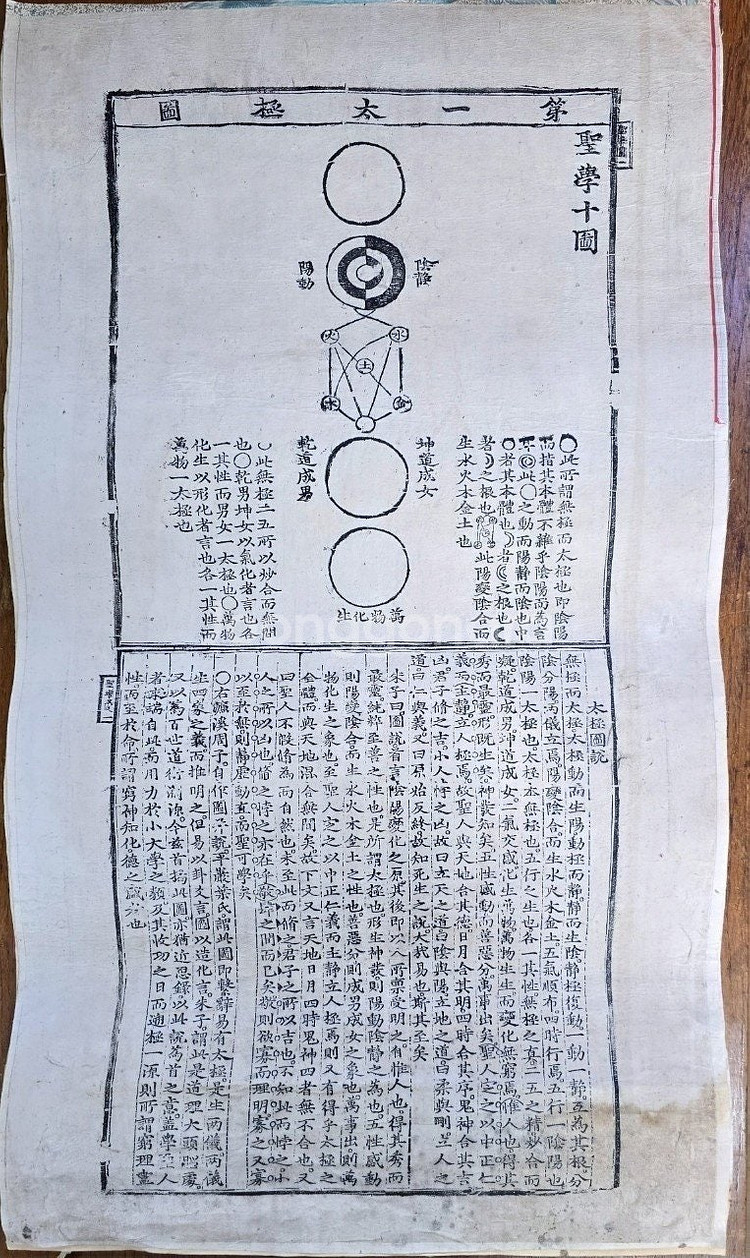 第一太極圖
聖學十圖
陰靜
陽動
火 水
土
木 金
坤道成女
乾道成男
萬物化生
○此所謂無極而太極也即陰陽
而指其本體不雜乎陰陽而為言
耳◎此○之動而陽靜而陰也中
○者其本體也☽者☾之根也☾
者☽之根也 此陽變陰合而
生水火木金土也
此無極二五所以妙合而無間
也○乾男坤女以氣化者言也各
一其性而男女一太極也○萬物
化生以形化者言也各一其性而
萬物一太極也
太極圖說
無極而太極太極動而生陽動極而靜靜而生陰靜極復動一動一靜互為其根分
陰分陽兩儀立焉陽變陰合而生水火木金土五氣順布四時行焉五行一陰陽也
陰陽一太極也太極本無極也五行之生也各一其性無極之真二五之精妙合而
凝乾道成男坤道成女二氣交感化生萬物萬物生生而變化無窮焉惟人也得其
秀而最靈形既生矣神發知矣五性感動而善惡分萬事出矣聖人定之以中正仁
義而主靜立人極焉故聖人與天地合其德日月合其明四時合其序鬼神合其吉
凶君子脩之吉小人悖之凶故曰立天之道曰陰與陽立地之道曰柔與剛立人之
道曰仁與義又曰原始反終故知死生之說大哉易也斯其至矣
朱子曰圖說首言陰陽變化之原其後即以人所稟受明之自惟人也得其秀而
最靈純粹至善之性也是所謂太極也形生神發則陽動陰靜之為也五性感動
則陽變陰合而生水火木金土之性也善惡分則成男成女之象也萬事出則萬
物化生之象也至聖人定之以中正仁義而主靜立人極焉則又有得乎太極之
全體而與天地混合無間矣故下文又言天地日月四時鬼神四者無不合也又
曰聖人不假脩為而自然也未至此而脩之君子之所以吉也不知此而悖之小
人之所以凶也脩之悖之亦在乎敬肆之間而已矣敬則欲寡而理明寡之又寡
以至於無則靜虛動直而聖可學矣
○右濂溪周子自作圖幷說平巖葉氏謂此圖即繫辭易有太極是生兩儀兩儀
生四象之義而推明之但易以卦爻言圖以造化言朱子謂此是道理大頭腦處
又以為百世道術淵源今玆首揭此圖亦猶近思錄以此說為首之意蓋學聖人
者求端自此而用力於小大學之類及其收功之日而遡極一源則所謂窮理盡
性而至於命所謂窮神知化德之盛者也